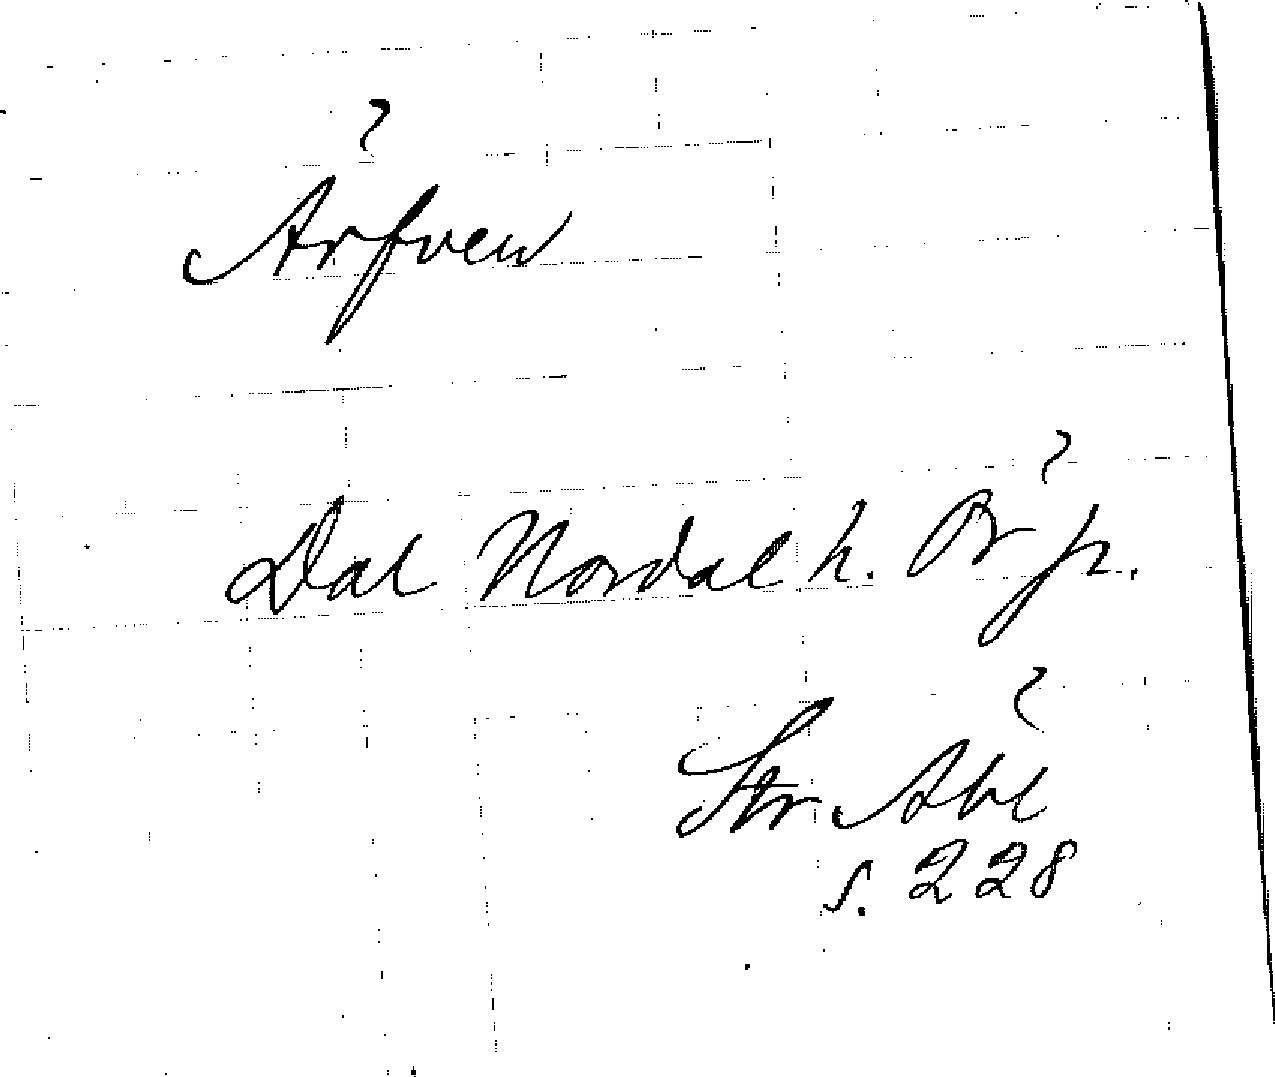 Ärfven
Dal Nordal h. Ör p.
Str Äbl
s. 228